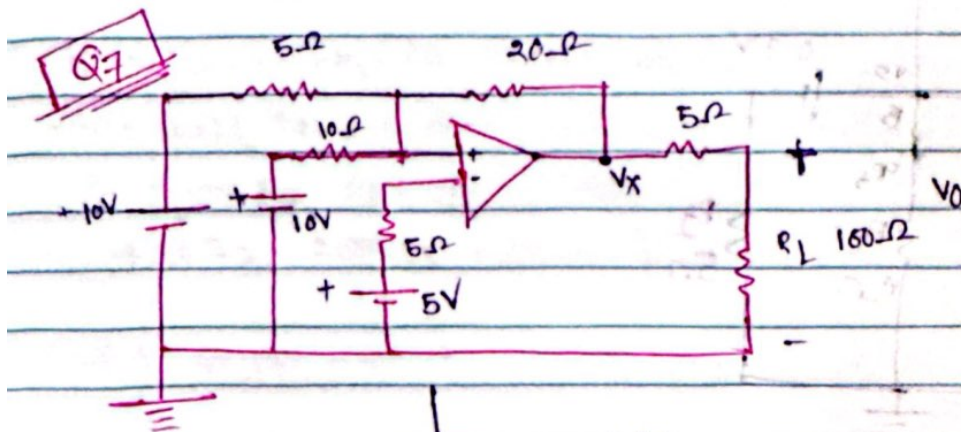 Q7
5Ω
20Ω
10Ω
5Ω
+
-
Vx
+
Vo
+10V
+
10V
5Ω
RL 100Ω
+
5V
-